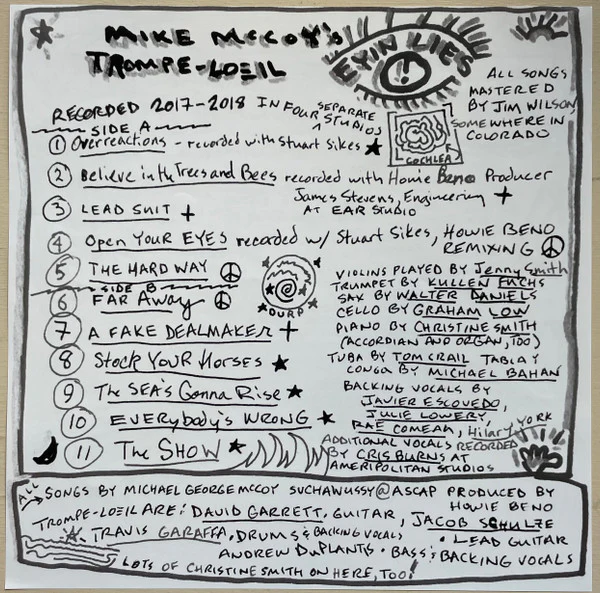 MIKE McCOY'S
TROMPE-LOEIL
EYIN LIES
!
ALL SONGS
MASTERED
BY JIM WILSON,
SOMEWHERE IN
COLORADO
RECORDED 2017-2018 IN FOUR SEPARATE STUDIOS
COCHLEA
SIDE A
1 Overreactions - recorded with Stuart Sikes
2 Believe in the Trees and Bees recorded with Howie Beno Producer
James Stevens, Engineering +
AT EAR STUDIO
3 LEAD SUIT +
4 Open YOUR EYES recorded w/ Stuart Sikes, HOWIE BENO
REMIXING
5 THE HARD WAY
SIDE B
6 FAR AWAY
7 A FAKE DEALMAKER +
8 Stock YOUR HORSES
9 The SEA'S Gonna Rise
10 EVERYbody's WRONG
11 The SHOW
VIOLINS PLAYED BY Jenny Smith
TRUMPET BY KULLEN FUCHS
SAX BY WALTER DANIELS
CELLO BY GRAHAM LOW
PIANO BY CHRISTINE SMITH
(ACCORDIAN AND ORGAN, TOO)
TUBA BY TOM CRAIL TABLA Y
CONGA BY MICHAEL BAHAN
BACKING VOCALS BY
JAVIER ESCOVEDO,
JULIE LOWERY,
RAE COMEAU, Hilary YORK
ADDITIONAL VOCALS RECORDED
BY CRIS BURNS AT
AMERIPOLITAN STUDIOS
ALL SONGS BY MICHAEL GEORGE McCOY SUCHAWUSSY@ASCAP PRODUCED BY
HOWIE BENO
TROMPE-LOEIL ARE: DAVID GARRETT, GUITAR, JACOB SCHULZE
• LEAD GUITAR
TRAVIS GARAFFA, DRUMS & BACKING VOCALS
ANDREW DuPLANTIS • BASS & BACKING VOCALS
LOTS OF CHRISTINE SMITH ON HERE, TOO!